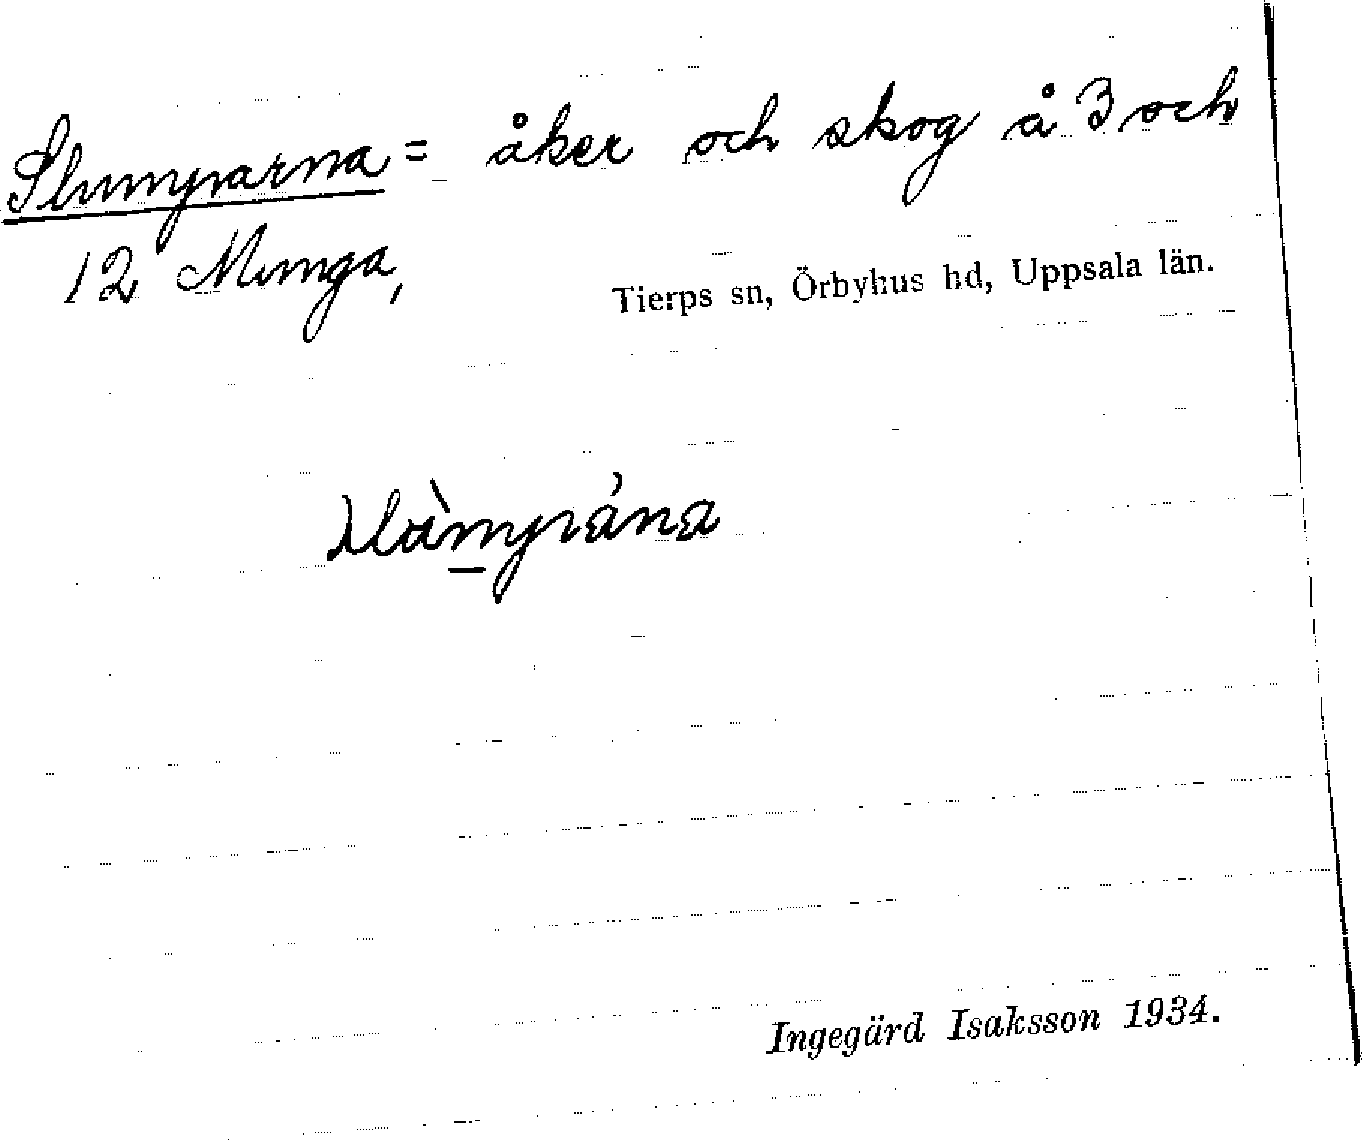 Slumparna = åker och skog å 3 och
12 Munga,
Tierps sn, Örbyhus hd, Uppsala län.
Ingegärd Isaksson 1934.